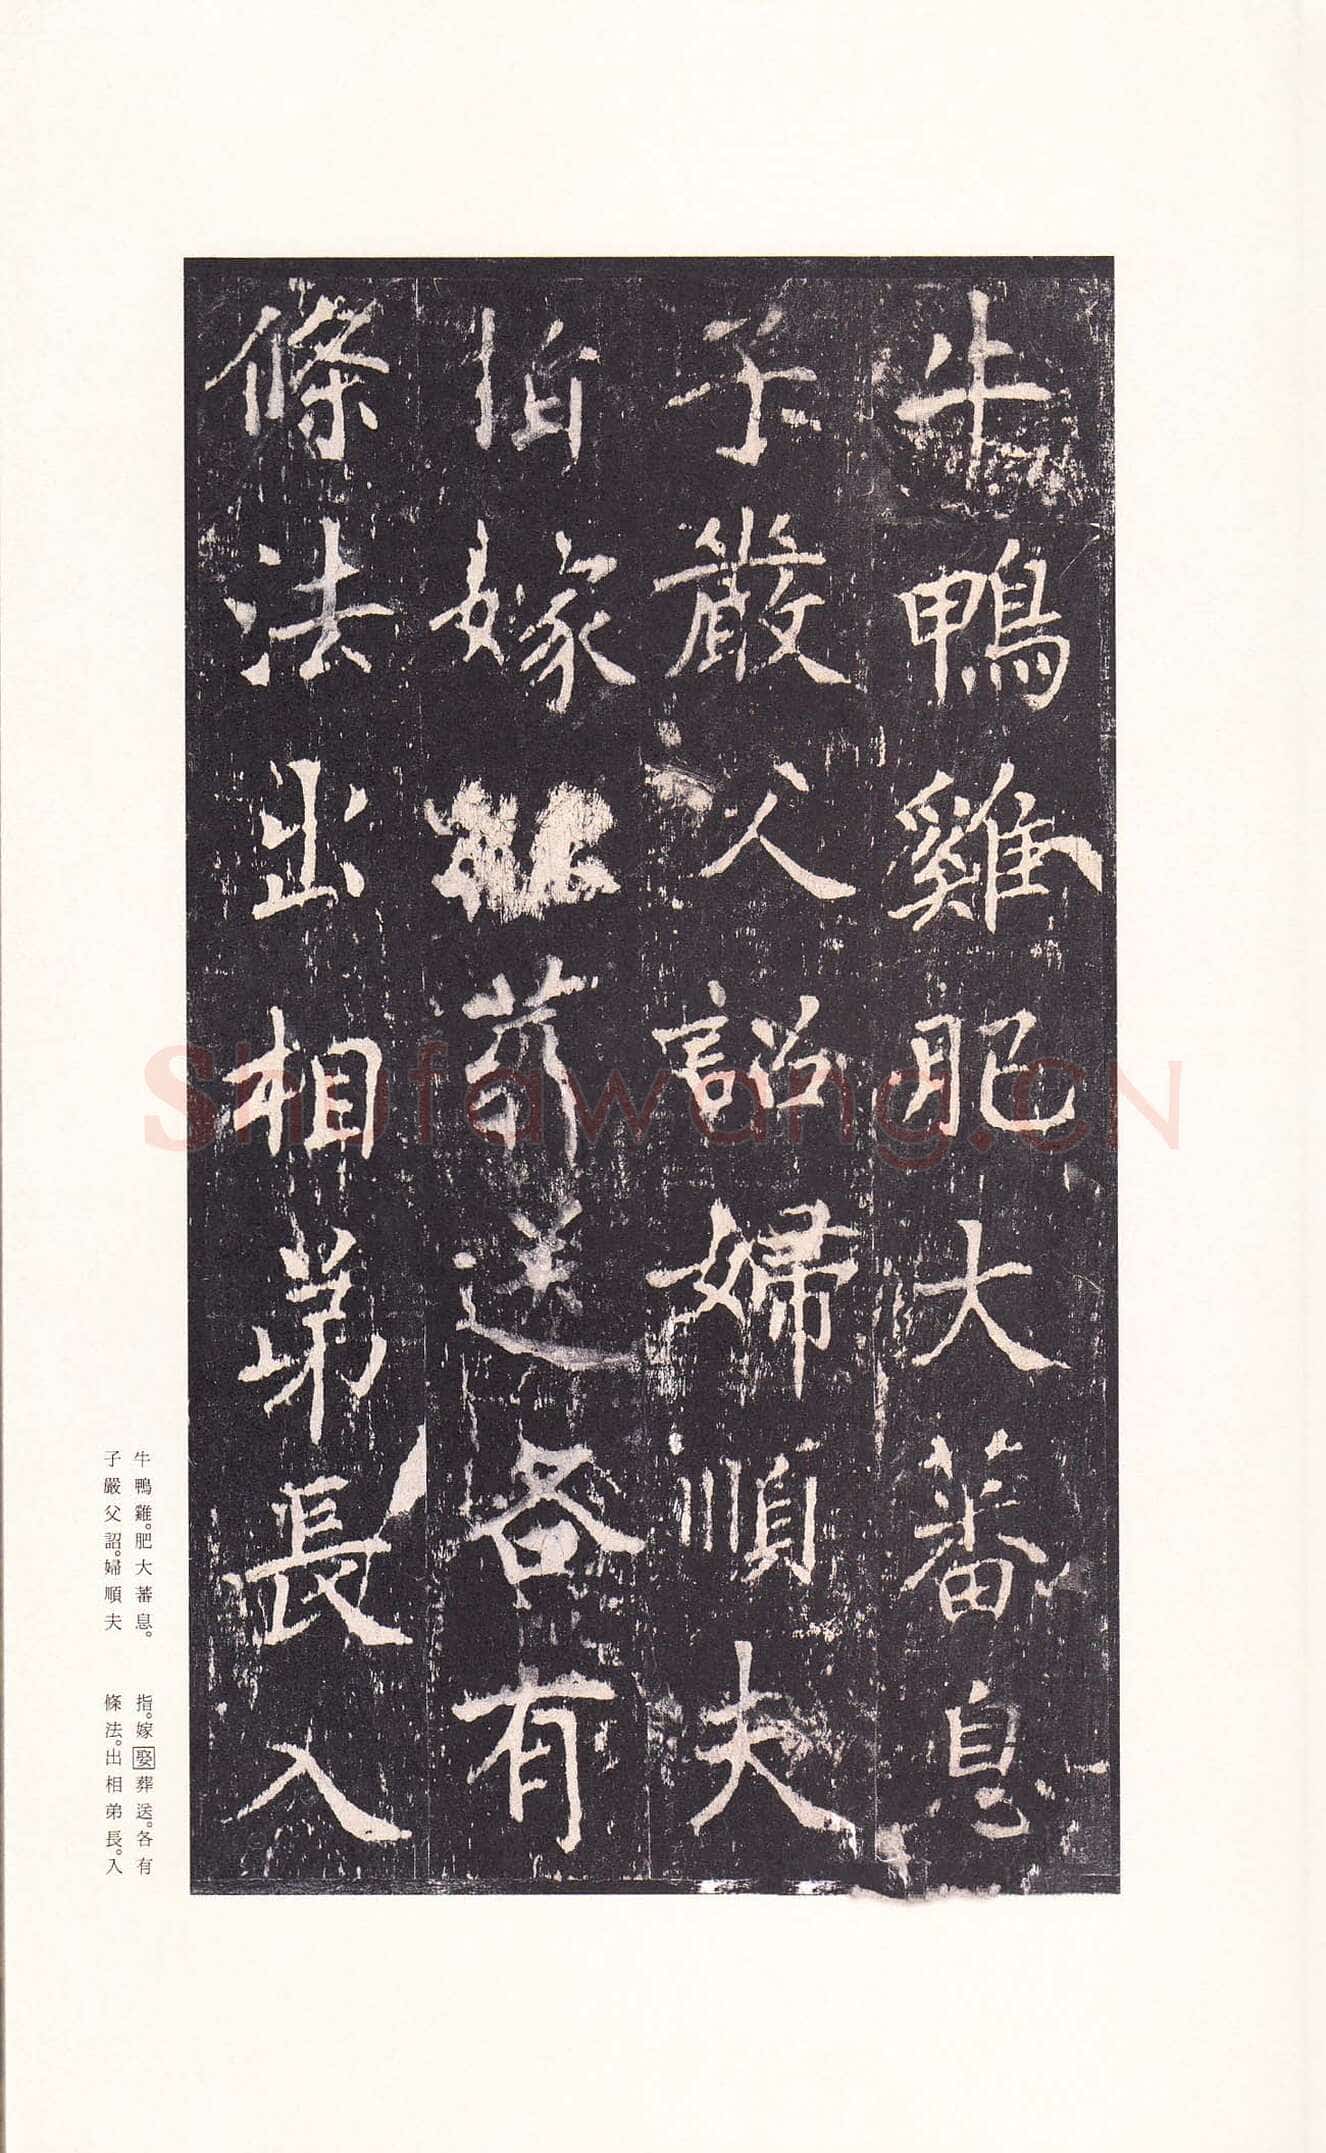 牛鴨雞肥大蕃息
子嚴父詔婦順夫
指嫁葬送各有
條法出相弟長入
牛鴨雞。肥大蕃息。
子嚴父詔。婦順夫
指。嫁娶葬送。各有
條法。出相弟長。入
Shufawang.CN